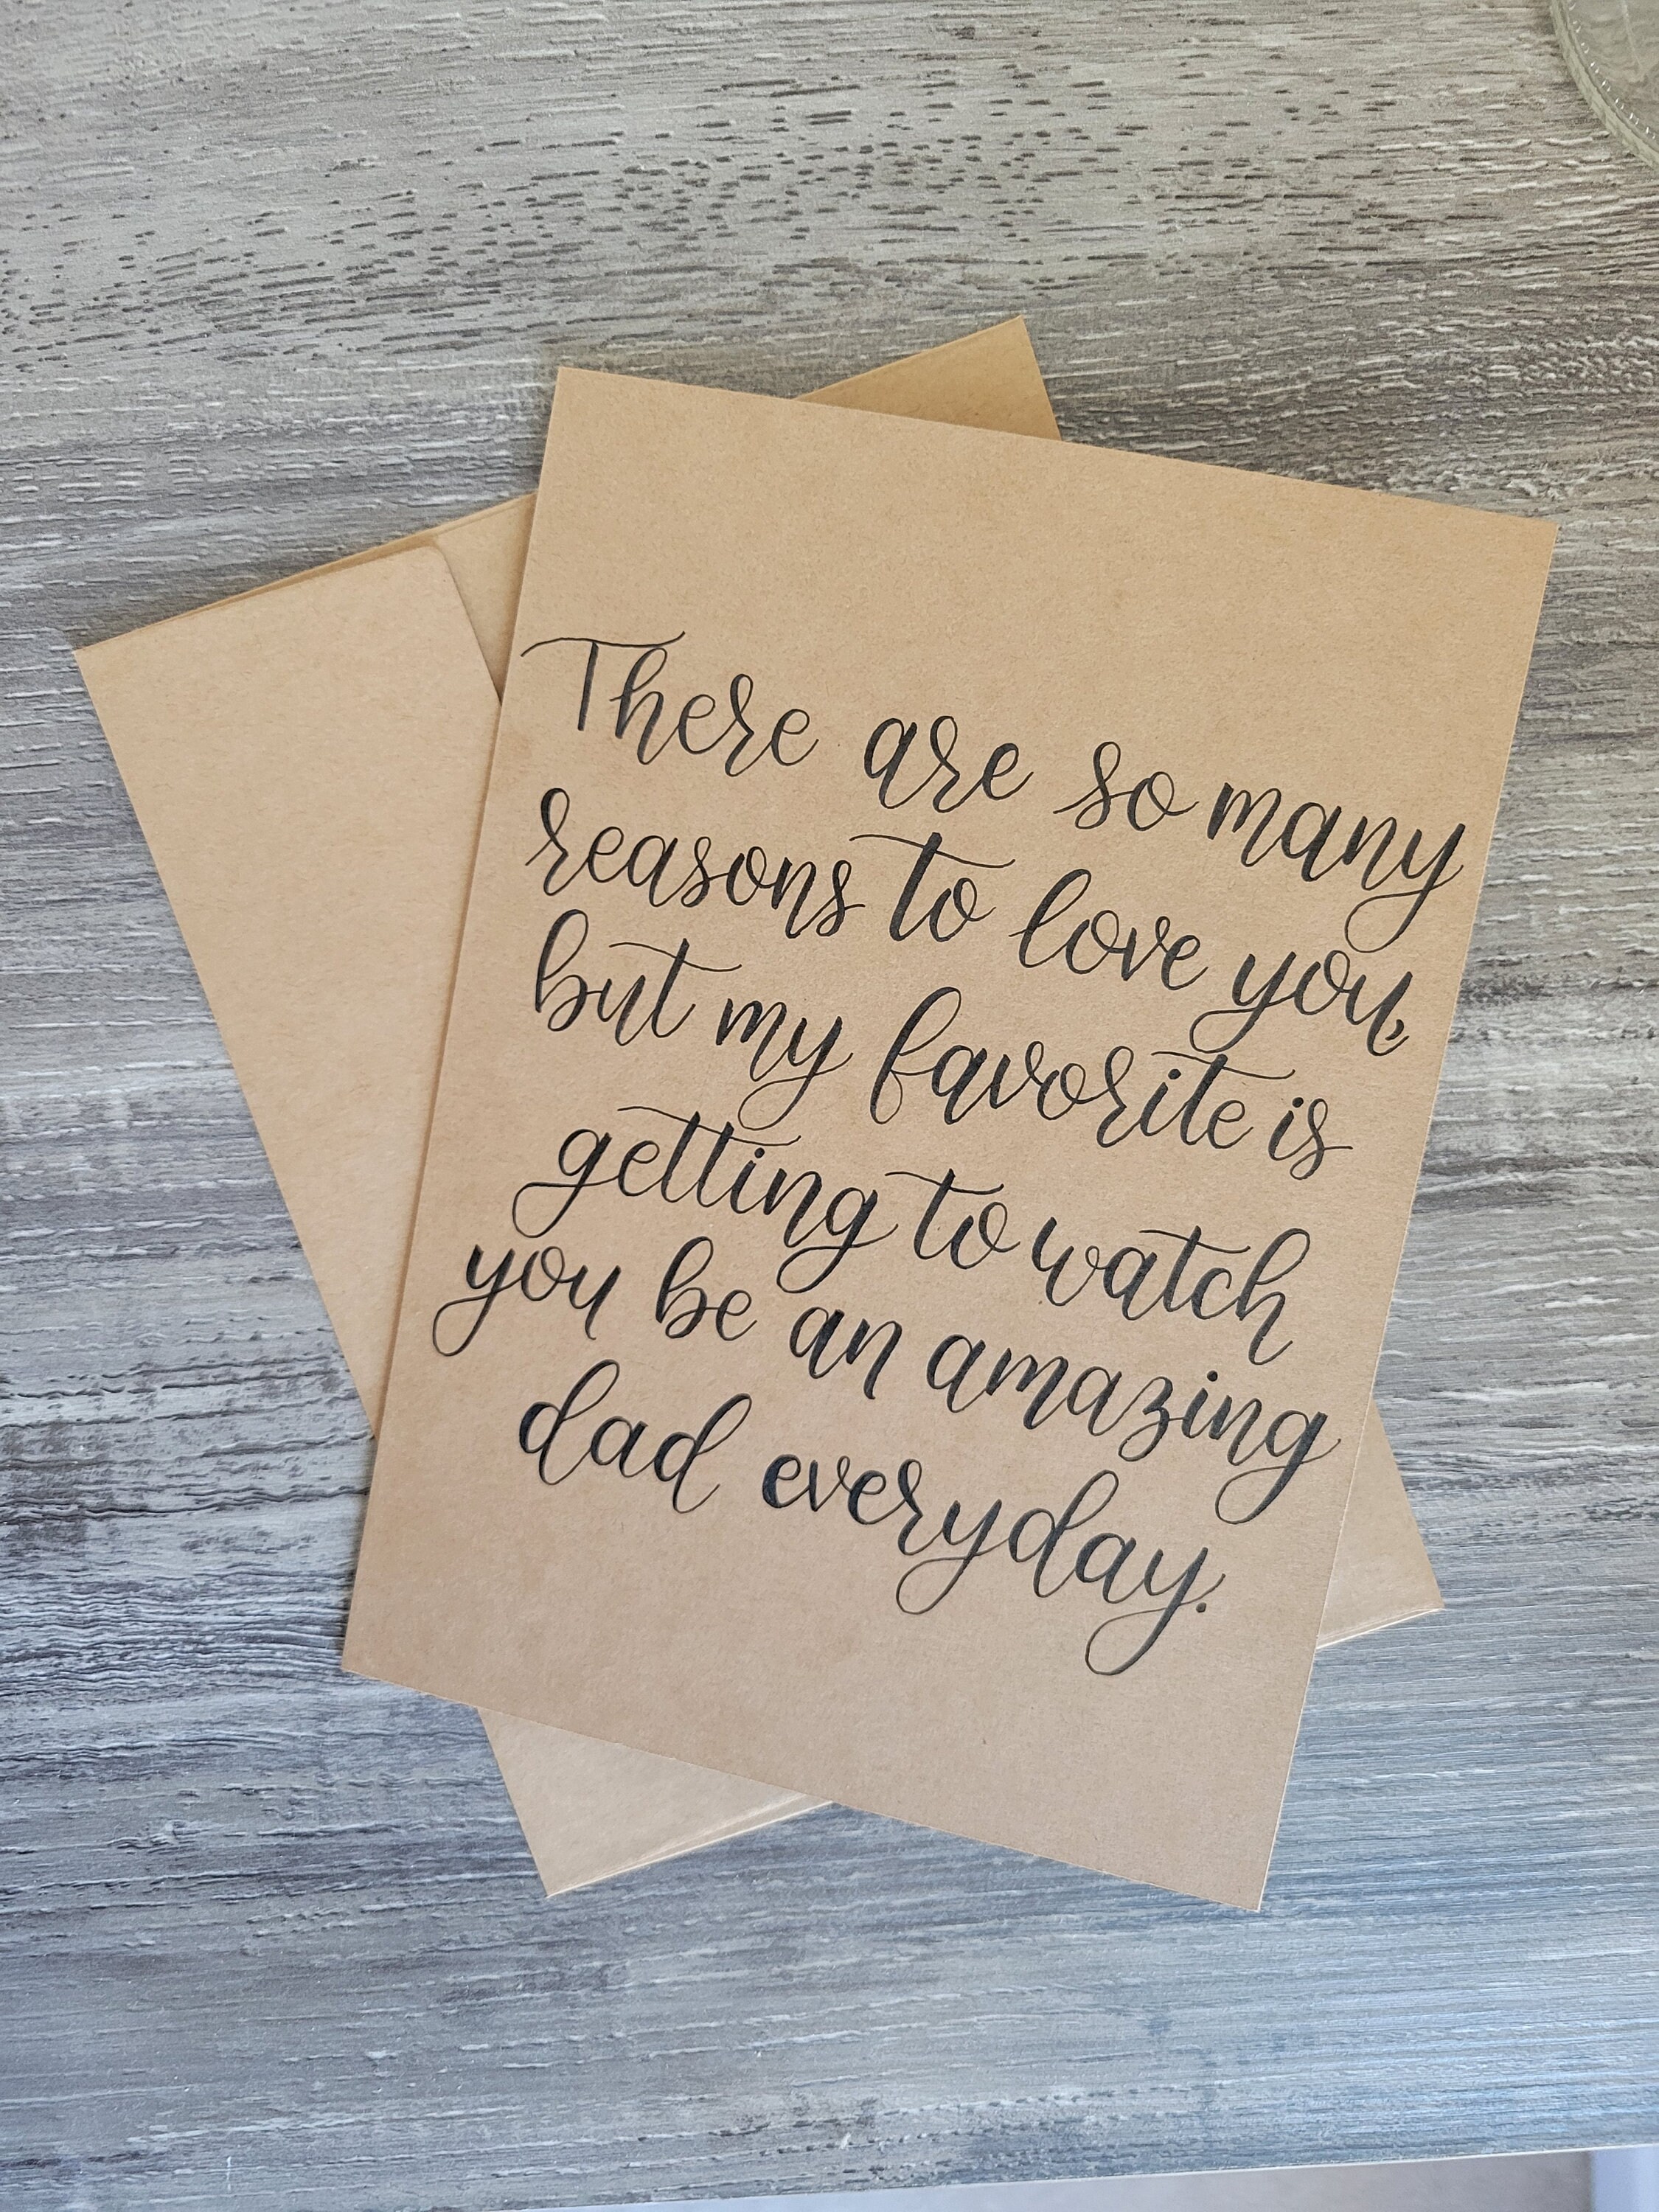 There are so many
reasons to love you,
but my favorite is
getting to watch
you be an amazing
dad everyday.